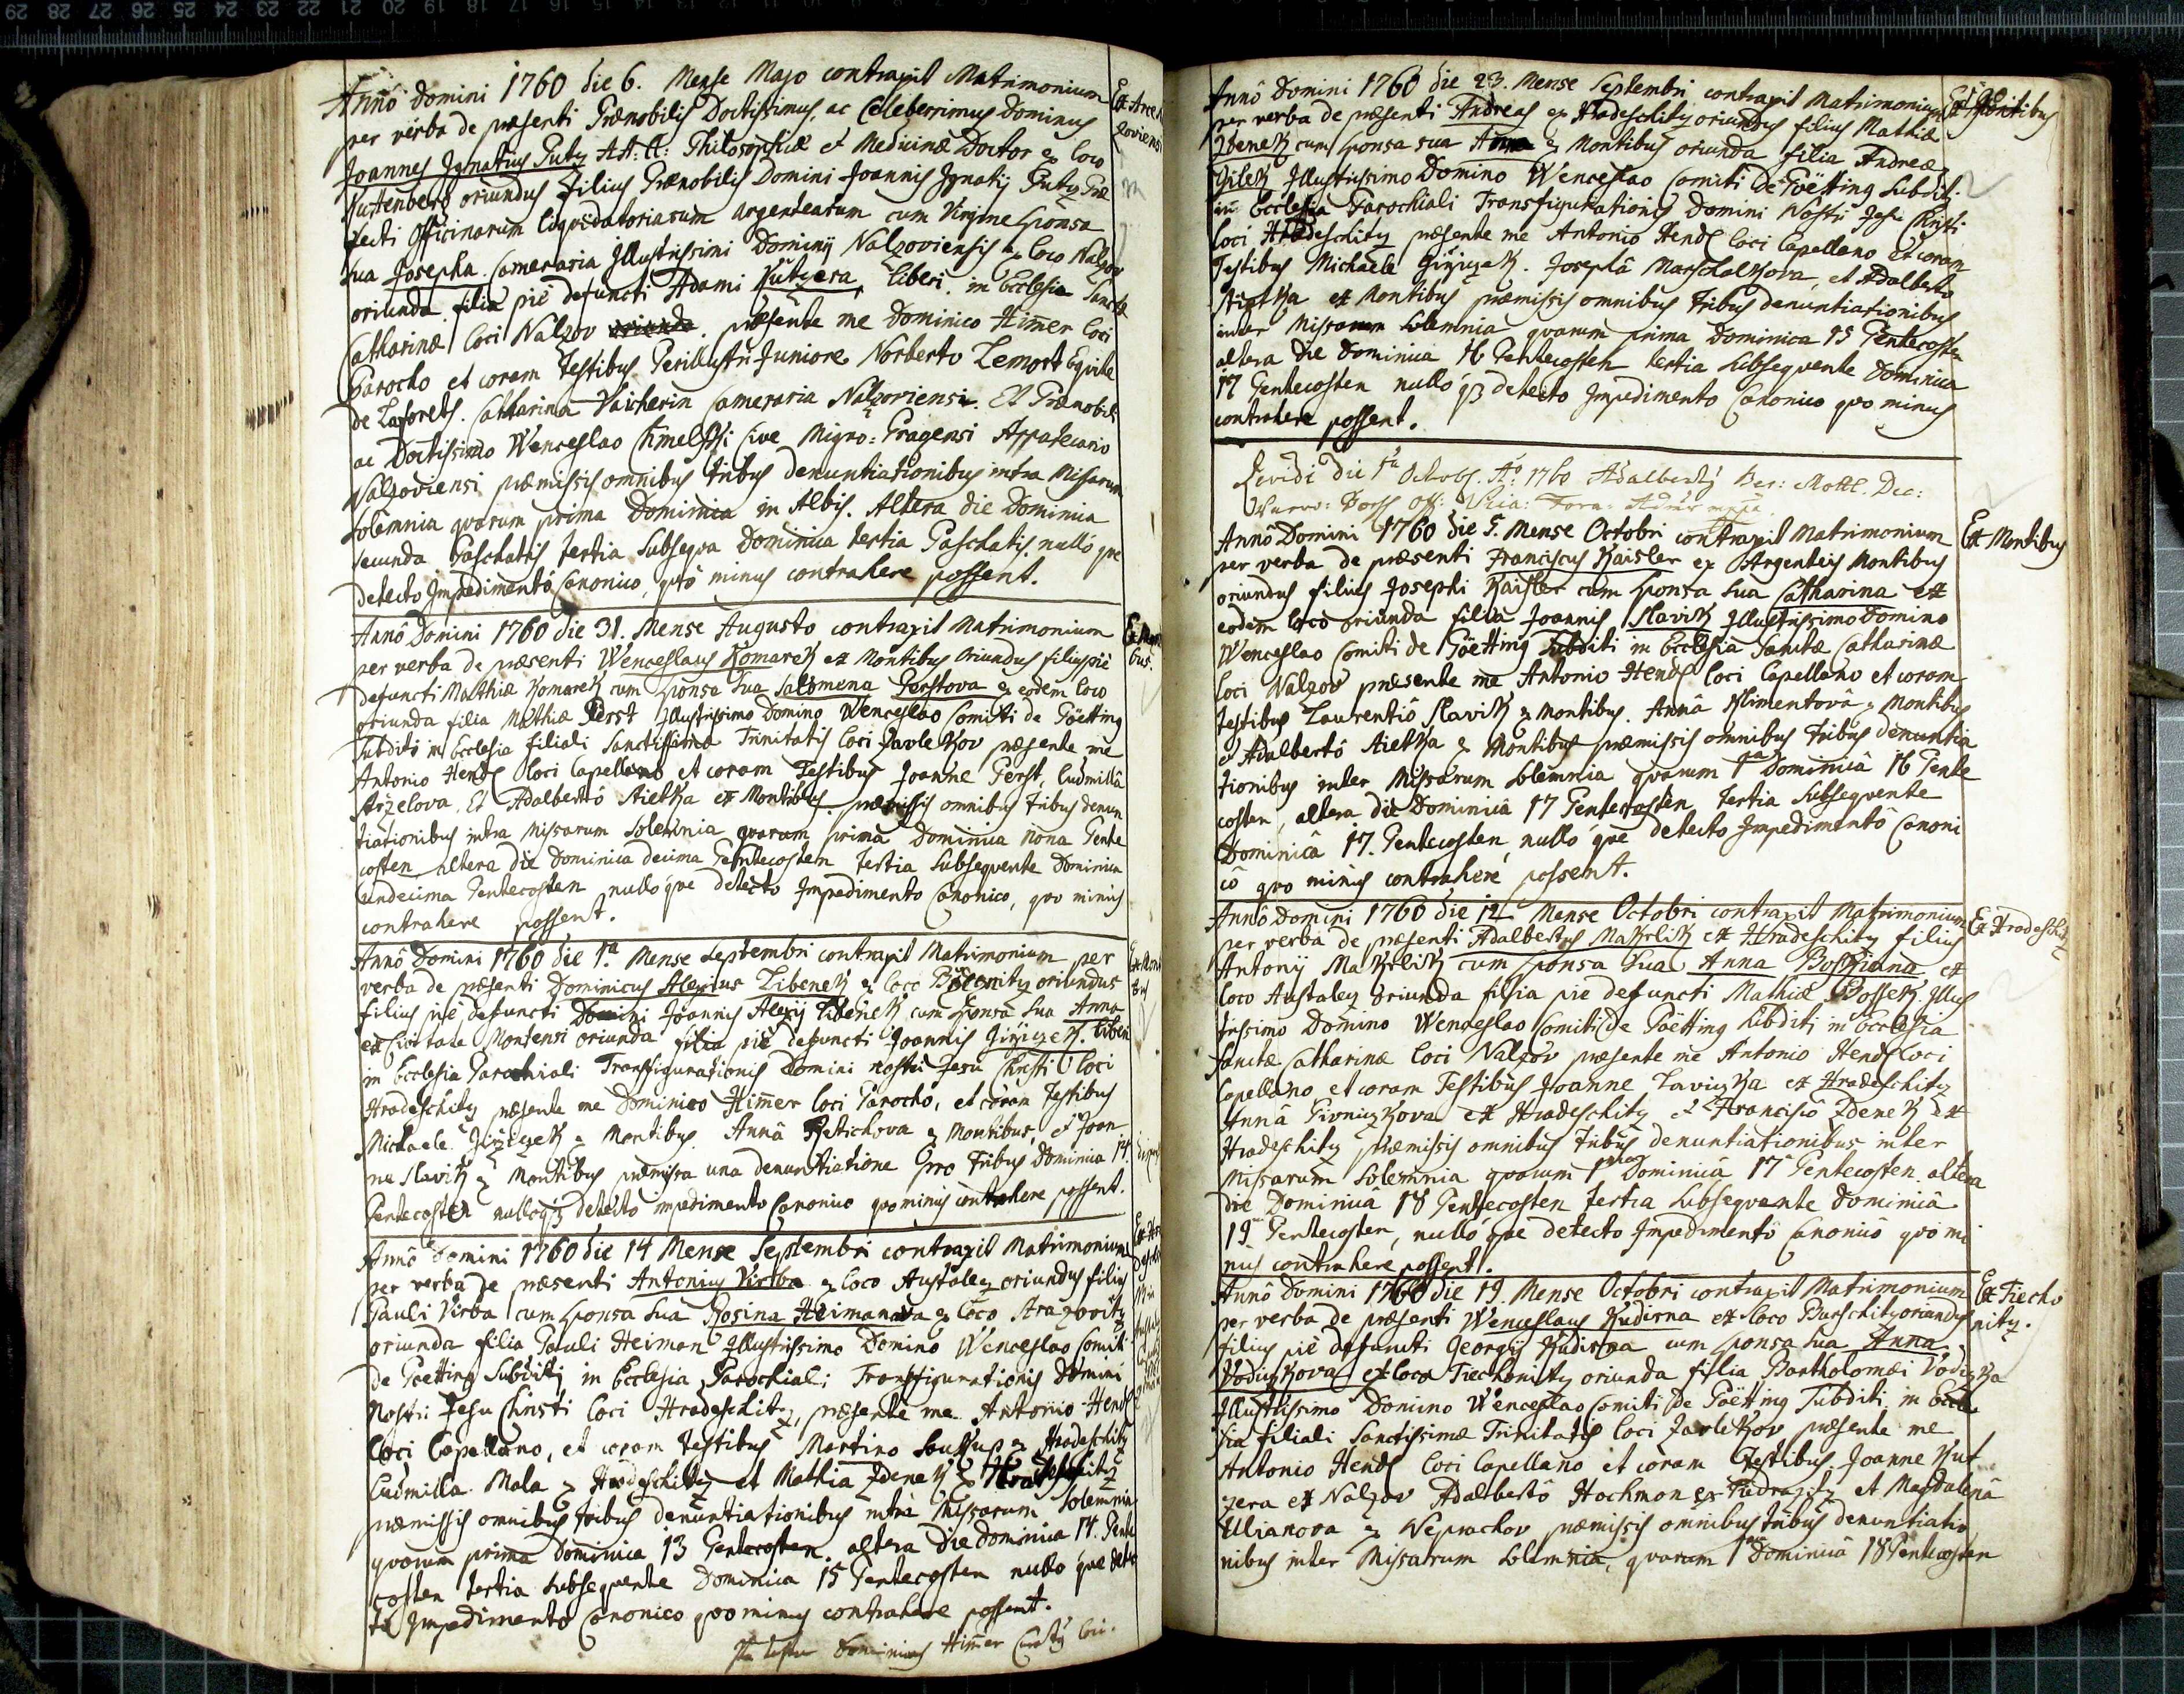 Anno Domini 1760 die 6. Mense Majo contraxit Matrimonium
per verba de præsenti Prænobilis Doctissimus, ac Celeberrimus Dominus
Joannes Ignatius Putz AA: LL: Philosophiæ et Medicinæ Doctor ex loco
Kuttenberg oriundus filius Prænobilis Domini Joannis Ignatij Putz Præ
fecti Officinarum liquidatoriarum argentearum cum Virgine Sponsa
sua Josepha Cameraria Illustrissimi Dominij Nalzoviensis ex loco Nalzov
oriunda filia pie defuncti Adami Kutzera, liberi, in Ecclesia Sanctæ
Catharinæ loci Nalzov præsente me Dominico Himer loci
Parocho et coram Testibus Perillustri Juniore Norberto Lemort Equite
de Laforets. Catharina Vaicherin Cameraria Nalzoviensi. Et Prænobili
ac Doctissimo Wenceslao Chmelski Cive Migro-Pragensi Appatecario
Nalzoviensi præmissis omnibus tribus denuntiationibus intra Missarum
solemnia quarum prima Dominica in Albis. Altera die Dominica
secunda Paschatis tertia Subsequa Dominica tertia Paschatis. nullo que
detecto Impedimento Canonico, quo minus contrahere possent.
Anno Domini 1760 die 31. Mense Augusto contraxit Matrimonium
per verba de præsenti Wenceslaus Komarek ex Montibus Oriundus filius pie
defuncti Mathiæ Komarek cum Sponsa Sua Salomena Gerstova ex eodem loco
oriunda filia Mathiæ Gerst Illustrissimo Domino Wenceslao Comiti de Götting
Subditi in Ecclesia filiali Sanctissimæ Trinitatis loci Javlekov præsente me
Antonio Hendl loci Capellano et coram Testibus Joanne Gerst, Ludmilla
Strzelova. Et Adalberto Stietka ex Montibus præmissis omnibus tribus denun
tiationibus intra Missarum Solemnia quarum prima Dominica nona Pente
costen altera die Dominica decima Pentecosten tertia Subsequente Dominica
undecima Pentecosten nulloque detecto Impedimento Canonico, quo minus
contrahere possent.
Anno Domini 1760 die 1a Mense Septembri contraxit Matrimonium per
verba de præsenti Dominicus Alexius Zibenek ex loco oriundus
filius pie defuncti Joannis Alexij Zibenek cum Sponsa Sua Anna
ex Civitate Montensi oriunda filia pie defuncti Joannis liberi
in Ecclesia Parochiali Transfigurationis Domini nostri Jesu Christi loci
Hradeschitz præsente me Dominico Himer loci Parocho, et coram Testibus
Michaele ex Montibus. Anna ex Montibus, et Joan
ne Slavik ex Montibus præmissa una denuntiatione pro tribus Dominica 14
Pentecosten nulloqz detecto impedimento Canonico quominus contrahere possent.
Anno Domini 1760 die 14 Mense Septembri contraxit Matrimonium
per verba de præsenti Antonius Virba ex loco Austalez oriundus filius
Pauli Virba cum Sponsa Sua Rosina Heimanova ex loco Strazovitz
oriunda filia Pauli Heiman Illustrissimo Domino Wenceslao Comiti
de Goetting Subditi in Ecclesia Parochiali Transfigurationis Domini
Nostri Jesu Christi loci Hradeschitz, præsente me Antonio Hendl
loci Capellano, et coram testibus Martino Soukup ex Hradeschitz
Ludmilla Mala ex Hradeschitz et Mathia Zdenek ex Hradeschitz
præmissis omnibus tribus denuntiationibus intra Missarum Solemnia
quarum prima Dominica 13 Pentecosten altera Die Dominica 14. Pente
costen tertia Subsequente Dominica 15 Pentecosten nullo que detec
to Impedimento Canonico quominus contrahere possent.
Dominicus Himer
Anno Domini 1760 die 23. Mense Septembri contraxit Matrimonium
per verba de præsenti Andreas ex Hradeschitz oriundus filius Mathiæ
Zdenek cum Sponsa sua Anna ex Montibus oriunda filia Andreæ
Illustrissimo Domino Wenceslao Comiti de Göetting Subditi
in Ecclesia Parochiali Transfigurationis Domini Nostri Jesu Christi
loci Hradeschitz præsente me Antonio Hendl loci Capellano Et coram
Testibus Michaele Josepha Marschalkova, et Adalberto
Stietka ex Montibus præmissis omnibus tribus denuntiationibus
inter Missarum Solemnia quarum prima Dominica 15 Pentecosten
altera Die Dominica 16 Pentecosten tertia Subsequente Dominica
17 Pentecosten nullo qz detecto Impedimento Canonico quo minus
contrahere possent.
Revidi Die 1a Octobr. Ao: 1760 Adalbertus
Anno Domini 1760 die 5. Mense Octobri contraxit Matrimonium
per verba de præsenti Franciscus Kaisler ex Argenteis Montibus
oriundus filius Josephi Kaisler cum Sponsa Sua Catharina ex
eodem loco oriunda filia Joannis Slavik Illustrissimo Domino
Wenceslao Comiti de Göetting Subditi in Ecclesia Sanctæ Catharinæ
loci Nalzov præsente me Antonio Hendl loci Capellano et coram
testibus Laurentio Slavik ex Montibus. Anna Klimentova ex Montibus
et Adalberto Stietka ex Montibus præmissis omnibus tribus denuntia
tionibus inter Missarum Solemnia quarum 1a Dominica 16 Pente
costen, altera die Dominica 17 Pentecosten, tertia Subsequente
Dominica 17. Pentecosten, nullo que detecto Impedimento Canoni
co quo minus contrahere possent.
Anno Domini 1760 die 12 Mense Octobri contraxit Matrimonium
per verba de præsenti Adalbertus Makrlik ex Hradeschitz filius
Antonij Makrlik cum Sponsa Sua Anna ex
loco Austalez oriunda filia pie defuncti Mathiæ Illus
trissimo Domino Wenceslao Comiti de Göetting Subditi in Ecclesia
Sanctæ Catharinæ loci Nalzov præsente me Antonio Hendl loci
Capellano et coram Testibus Joanne ex Hradeschitz
Anna ex Hradeschitz et Francisco Zdenek ex
Hradeschitz præmissis omnibus tribus denuntiationibus inter
Missarum Solemnia quarum 1ma Dominica 17 Pentecosten altera
die Dominica 18 Pentecosten tertia Subsequente Dominica
19 Pentecosten, nullo que detecto Impedimento Canonico quo mi
nus contrahere possent.
Anno Domini 1760 die 19. Mense Octobri contraxit Matrimonium
per verba de præsenti Wenceslaus Kudirna ex loco Burschitz oriundus
filius pie defuncti Georgij Kudirna cum Sponsa Sua Anna
Vodiczkova ex loco Tiechonitz oriunda filia Bartholomæi Vodiczka
Illustrissimo Domino Wenceslao Comiti de Göetting Subditi in Eccle
sia filiali Sanctissimæ Trinitatis loci Javlekov præsente me
Antonio Hendl loci Capellano et coram Testibus Joanne Kut
zera ex Nalzov Adalberto Hochman ex et Magdalena
Ulianova ex Neprochov præmissis omnibus tribus denuntiatio
nibus inter Missarum Solemnia, quarum 1ma Dominica 18 Pentecosten
Ex Montibus
Ex Hradeschitz
Ex Tiecho
nitz.